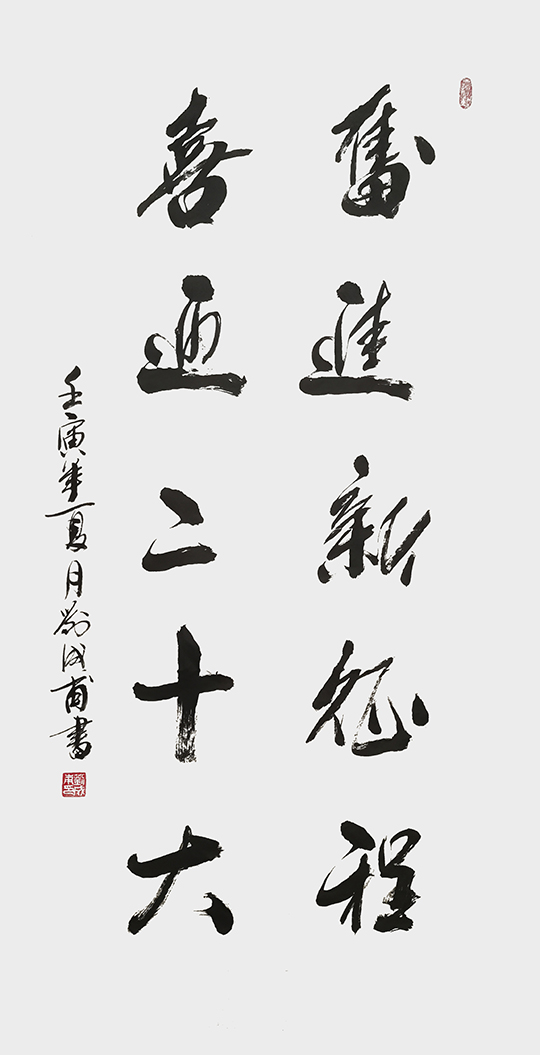 奮進新征程
喜迎二十大
壬寅年夏月劉成甫書